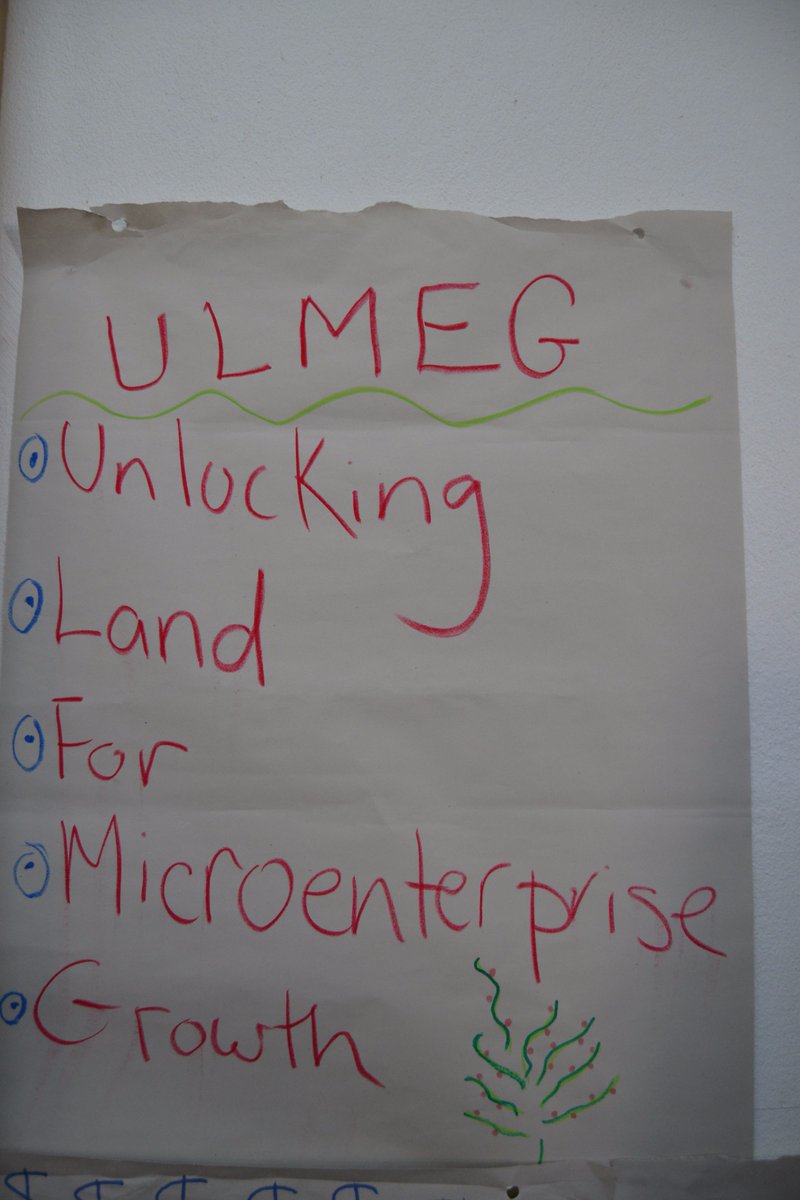 ULMEG
Unlocking
Land
For
Microenterprise
Growth